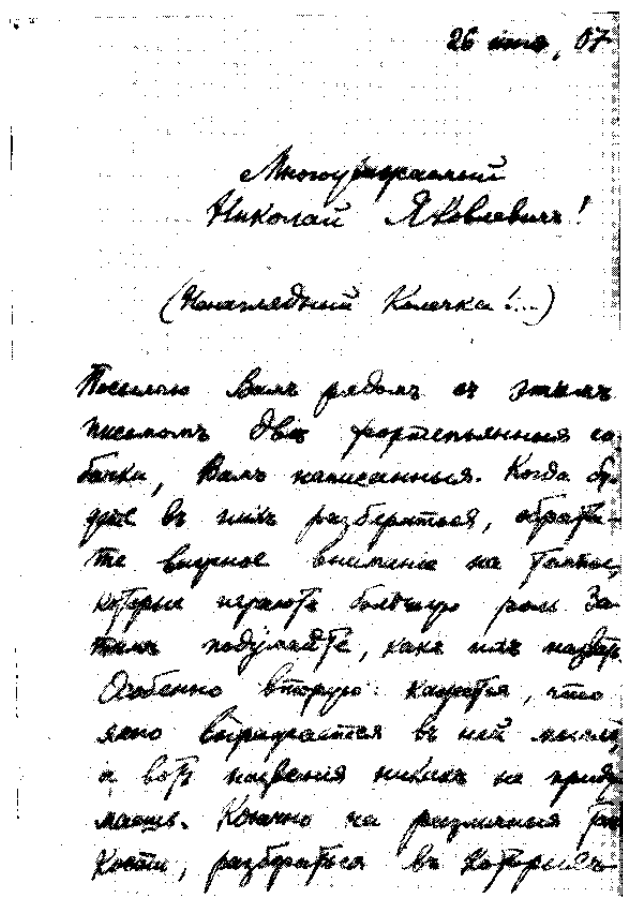 26 июня, 07
Многоуважаемый
Николай Яковлевичъ!
(Ненаглядный Колечка!...)
Посылаю Вамъ рядомъ съ этимъ
письмомъ двѣ фортепьянныя со
бачки, Вамъ написанныя. Когда бу-
дете въ нихъ разбираться, обрати-
те вниманіе на темпы,
которые играютъ большую роль. За
темъ подумайте, какъ ихъ назвать.
Особенно вторую: кажется, что
ясно выражается въ ней мысль,
а вотъ названія никакъ не приду
маешь. Конечно на различныя
кости, разбираться въ которыхъ